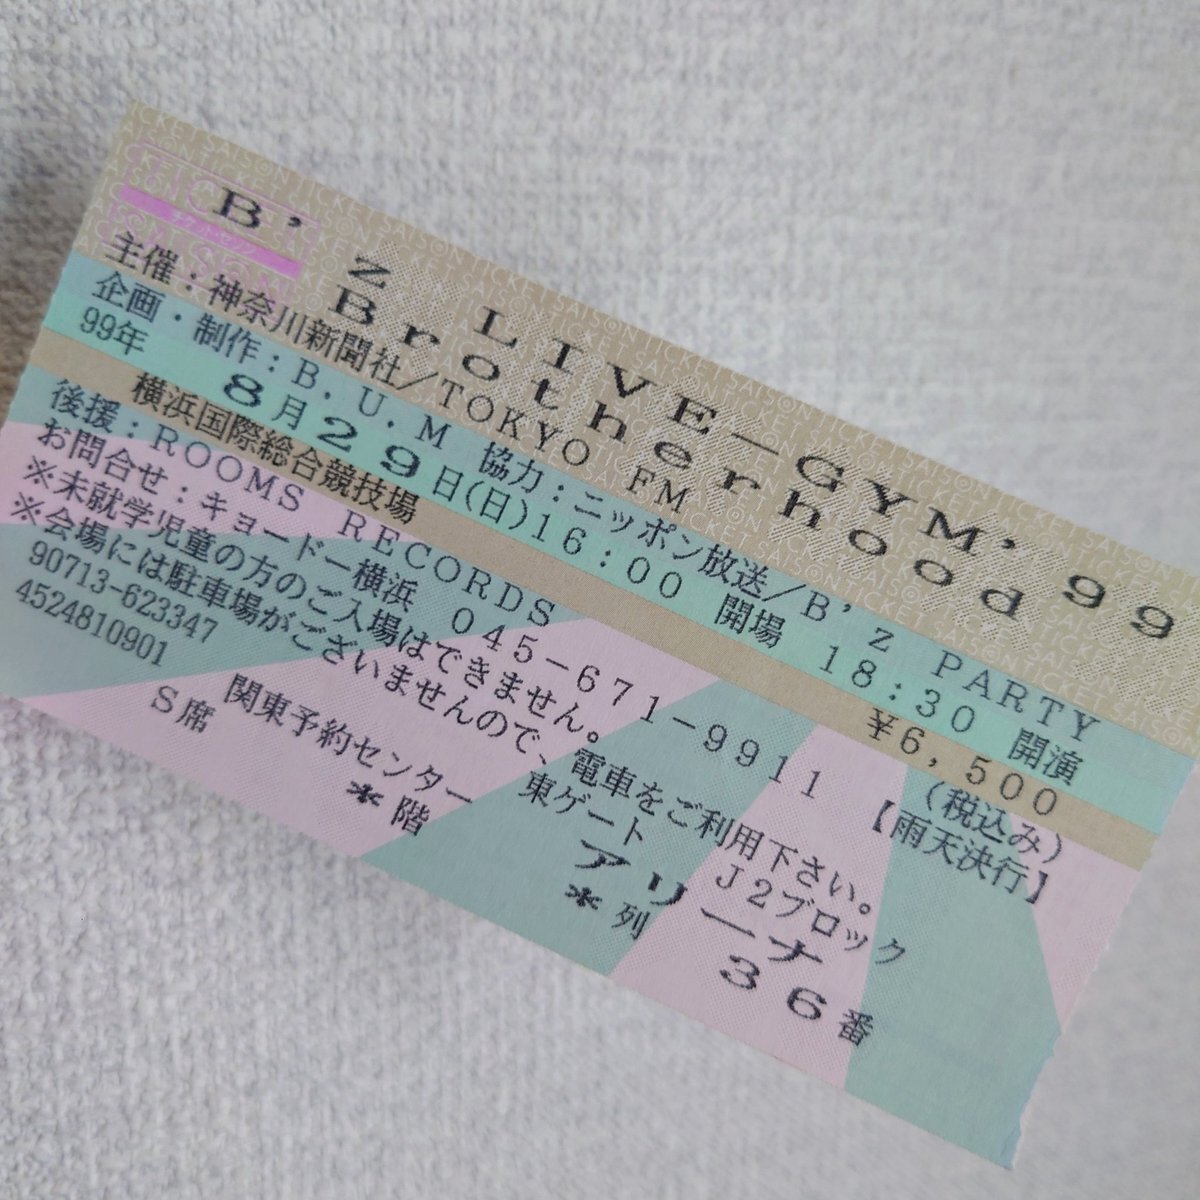 B'z LIVE－GYM'99
Brotherhood
主催：神奈川新聞社／TOKYO FM
企画・制作：B．U．M 協力：ニッポン放送／B'z PARTY
99年 8月29日(日)16:00 開場 18:30 開演
横浜国際総合競技場 ￥6,500 (税込み)
後援：ROOMS RECORDS 【雨天決行】
お問合せ：キョードー横浜 045－671－9911
※未就学児童の方のご入場はできません。
※会場には駐車場がございませんので、電車をご利用下さい。
90713-623347 関東予約センター 東ゲート J2ブロック
4524810901 アリーナ
S席 ＊階 ＊列 36番
チケットセゾン
TICKET SAISON